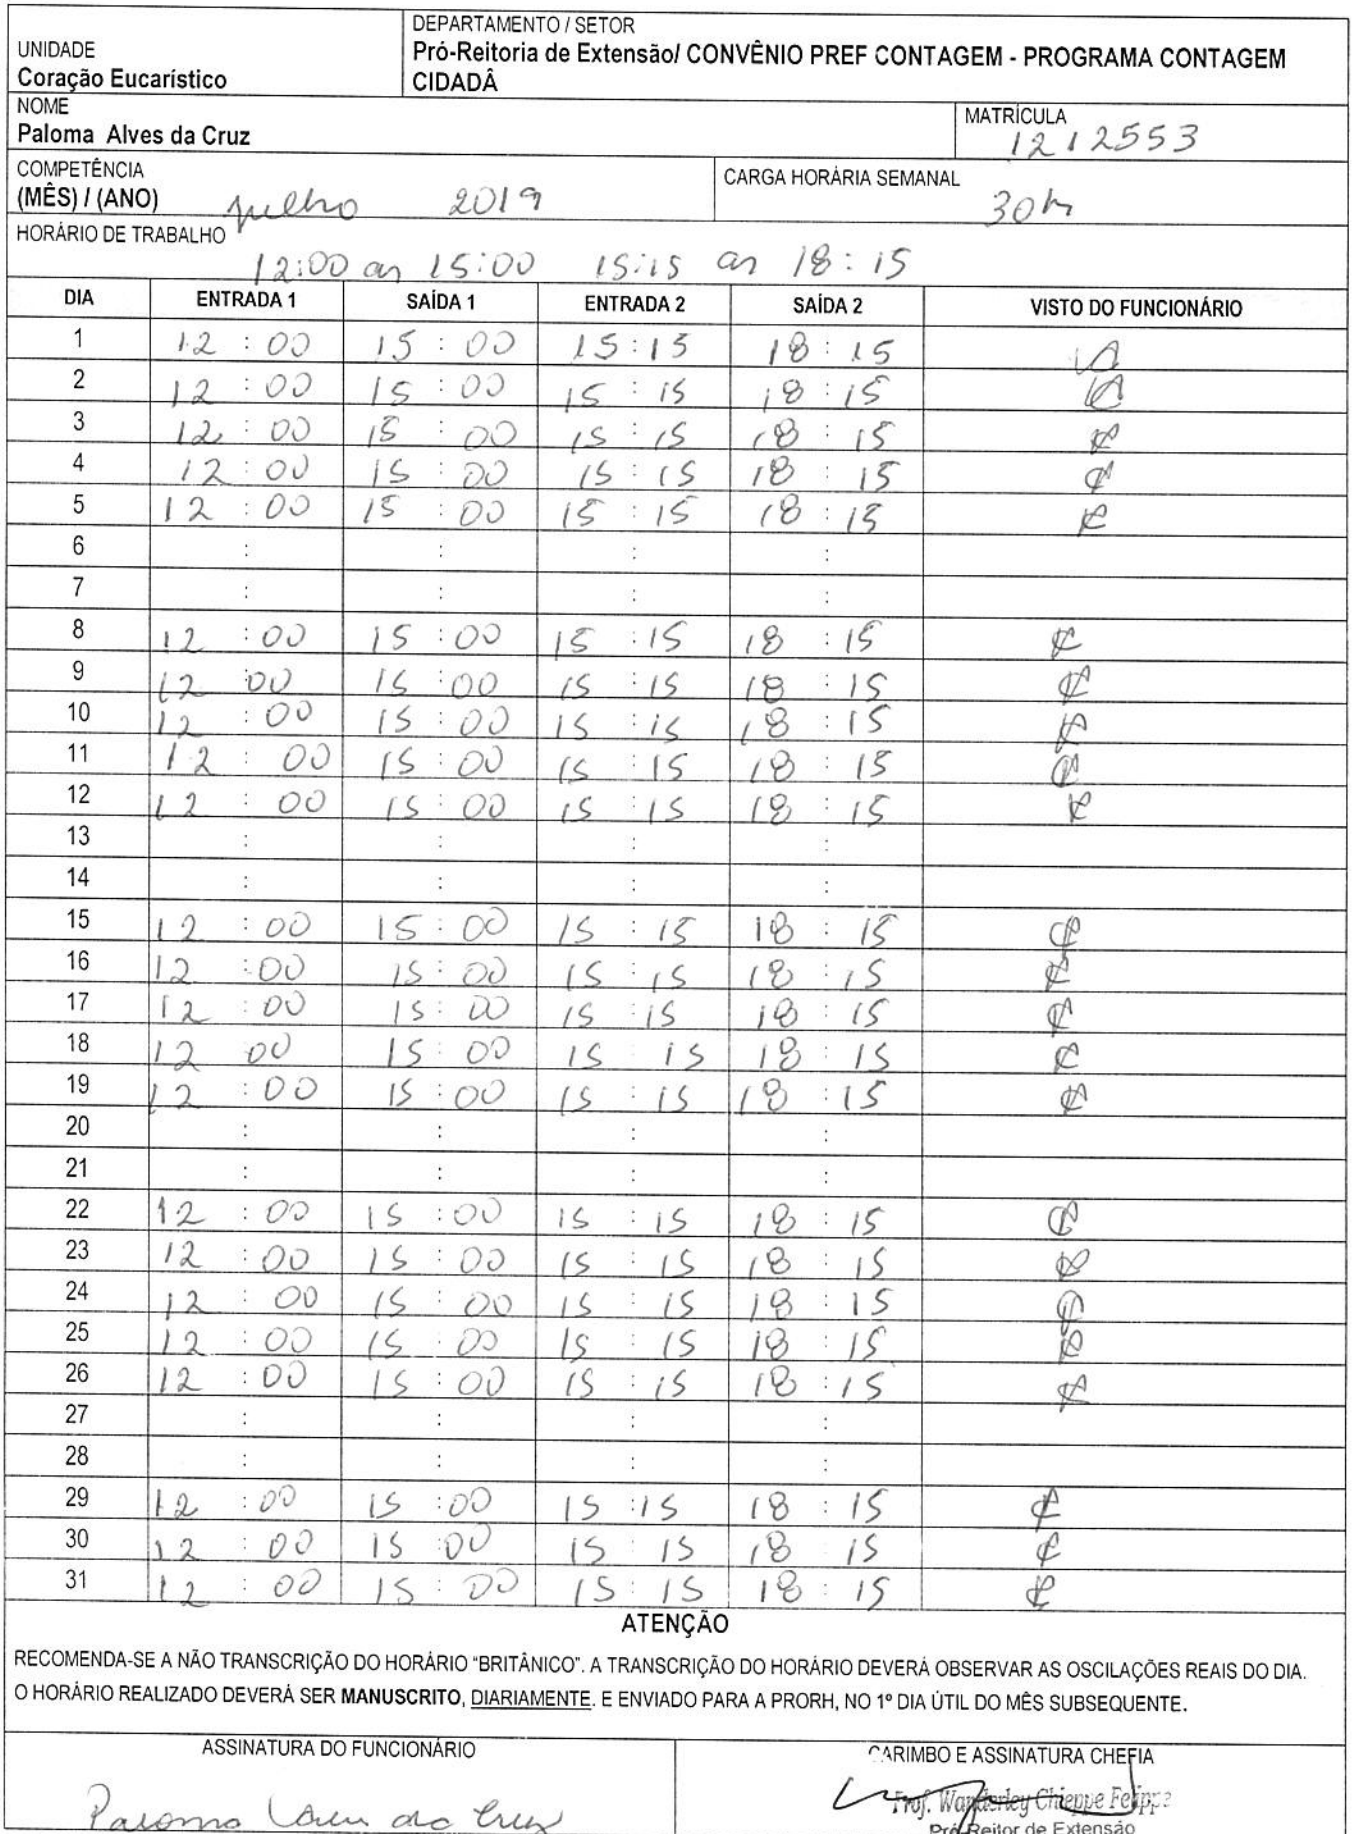 UNIDADE
Coração Eucarístico
DEPARTAMENTO / SETOR
Pró-Reitoria de Extensão/ CONVÊNIO PREF CONTAGEM - PROGRAMA CONTAGEM
CIDADÂ
NOME
Paloma Alves da Cruz
MATRÍCULA
1212553
COMPETÊNCIA
(MÊS) / (ANO) julho 2019
CARGA HORÁRIA SEMANAL
30h
HORÁRIO DE TRABALHO
12:00 as 15:00 15:15 as 18:15
DIA ENTRADA 1 SAÍDA 1 ENTRADA 2 SAÍDA 2 VISTO DO FUNCIONÁRIO
1 12 : 00 15 : 00 15:15 18 : 15
2 12 : 00 15 : 00 15 : 15 18 : 15
3 12 : 00 15 : 00 15 : 15 18 : 15
4 12 : 00 15 : 00 15 : 15 18 : 15
5 12 : 00 15 : 00 15 : 15 18 : 15
6 : : : :
7 : : : :
8 12 : 00 15 : 00 15 : 15 18 : 15
9 12 : 00 15 : 00 15 : 15 18 : 15
10 12 : 00 15 : 00 15 : 15 18 : 15
11 12 : 00 15 : 00 15 : 15 18 : 15
12 12 : 00 15 : 00 15 : 15 18 : 15
13 : : : :
14 : : : :
15 12 : 00 15 : 00 15 : 15 18 : 15
16 12 : 00 15 : 00 15 : 15 18 : 15
17 12 : 00 15 : 00 15 : 15 18 : 15
18 12 00 15 : 00 15 15 18 : 15
19 12 : 00 15 : 00 15 : 15 18 : 15
20 : : : :
21 : : : :
22 12 : 00 15 : 00 15 : 15 18 : 15
23 12 : 00 15 : 00 15 : 15 18 : 15
24 12 : 00 15 : 00 15 : 15 18 : 15
25 12 : 00 15 : 00 15 : 15 18 : 15
26 12 : 00 15 : 00 15 : 15 18 : 15
27 : : : :
28 : : : :
29 12 : 00 15 : 00 15 : 15 18 : 15
30 12 : 00 15 : 00 15 : 15 18 : 15
31 12 : 00 15 : 00 15 : 15 18 : 15
ATENÇÃO
RECOMENDA-SE A NÃO TRANSCRIÇÃO DO HORÁRIO "BRITÂNICO". A TRANSCRIÇÃO DO HORÁRIO DEVERÁ OBSERVAR AS OSCILAÇÕES REAIS DO DIA.
O HORÁRIO REALIZADO DEVERÁ SER MANUSCRITO, DIARIAMENTE. E ENVIADO PARA A PRORH, NO 1º DIA ÚTIL DO MÊS SUBSEQUENTE.
ASSINATURA DO FUNCIONÁRIO
Paloma Alves da Cruz
CARIMBO E ASSINATURA CHEFIA
Prof. Wanderley Chieppe Felippe
Pró-Reitor de Extensão